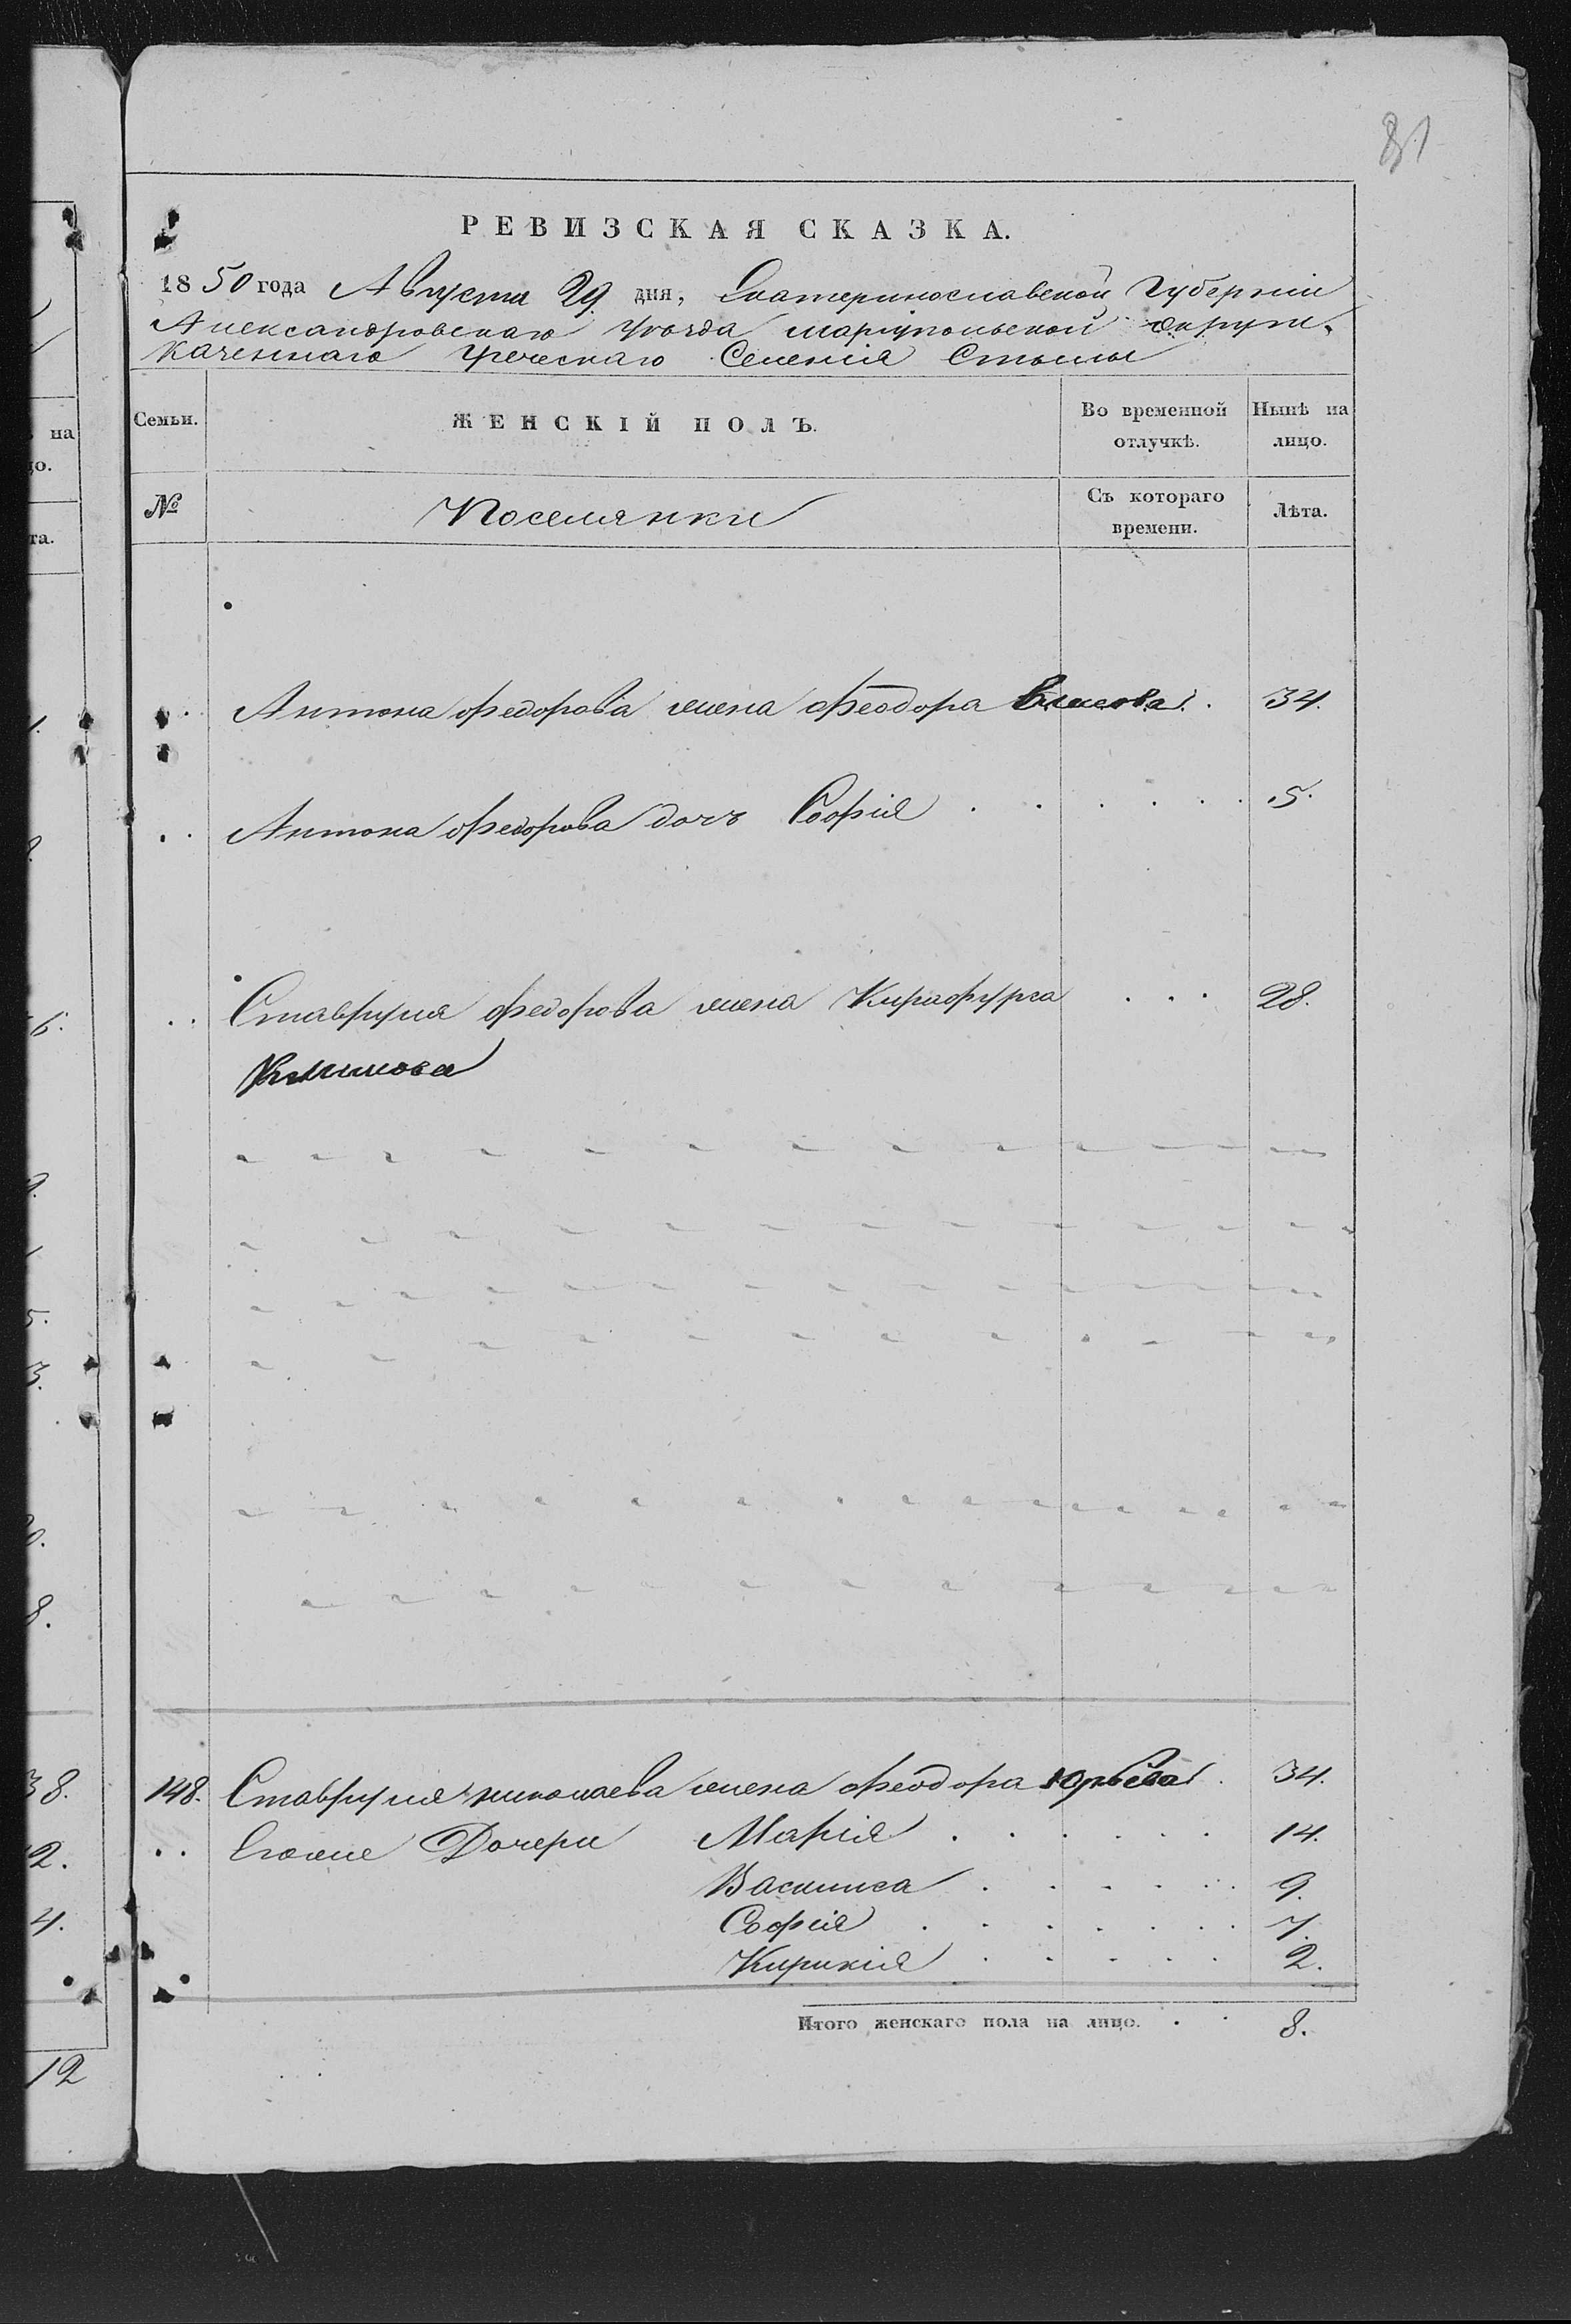 81
РЕВИЗСКАЯ СКАЗКА.
1850 года Августа 29 дня, Екатеринославской Губерніи
Александровскаго Уѣзда Маріупольской округи,
Казеннаго Греческаго Селенія Стылы
Семьи.
ЖЕНСКІЙ ПОЛЪ.
Во временной отлучкѣ.
Нынѣ на лицо.
№
Поселянки
Съ котораго времени.
Лѣта.
Антона Федорова жена Феодора Власова. 34.
Антона Федорова дочь Софія 5.
Ставруля Федорова жена Кирафурга 28.
148. Ставруля Николаева жена Феодора Юрьева. 34.
Егоже Дочери Марія 14.
Василиса 9.
Софія 7.
Кирикія 2.
Итого женскаго пола на лицо. 8.
на
та.
6.
5.
3.
8.
38.
2.
4.
12